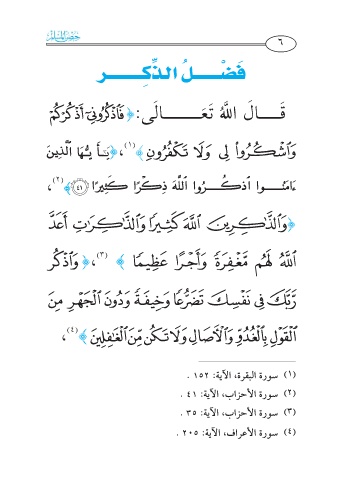 حصن المسلم
٦
فَضْلُ الذِّكِرِ
قَالَ اللَّهُ تَعَالَى: ﴿فَاذْكُرُونِي أَذْكُرْكُمْ
وَاشْكُرُوا لِي وَلَا تَكْفُرُونِ﴾(١)، ﴿يَٰأَيُّهَا الَّذِينَ
ءَامَنُوا اذْكُرُوا اللَّهَ ذِكْرًا كَثِيرًا ٤١﴾(٢)،
﴿وَالذَّاكِرِينَ اللَّهَ كَثِيرًا وَالذَّاكِرَاتِ أَعَدَّ
اللَّهُ لَهُم مَّغْفِرَةً وَأَجْرًا عَظِيمًا﴾(٣)، ﴿وَاذْكُر
رَّبَّكَ فِي نَفْسِكَ تَضَرُّعًا وَخِيفَةً وَدُونَ الْجَهْرِ مِنَ
الْقَوْلِ بِالْغُدُوِّ وَالْآصَالِ وَلَا تَكُن مِّنَ الْغَافِلِينَ﴾(٤)،
(١) سورة البقرة، الآية: ١٥٢ .
(٢) سورة الأحزاب، الآية: ٤١ .
(٣) سورة الأحزاب، الآية: ٣٥ .
(٤) سورة الأعراف، الآية: ٢٠٥ .